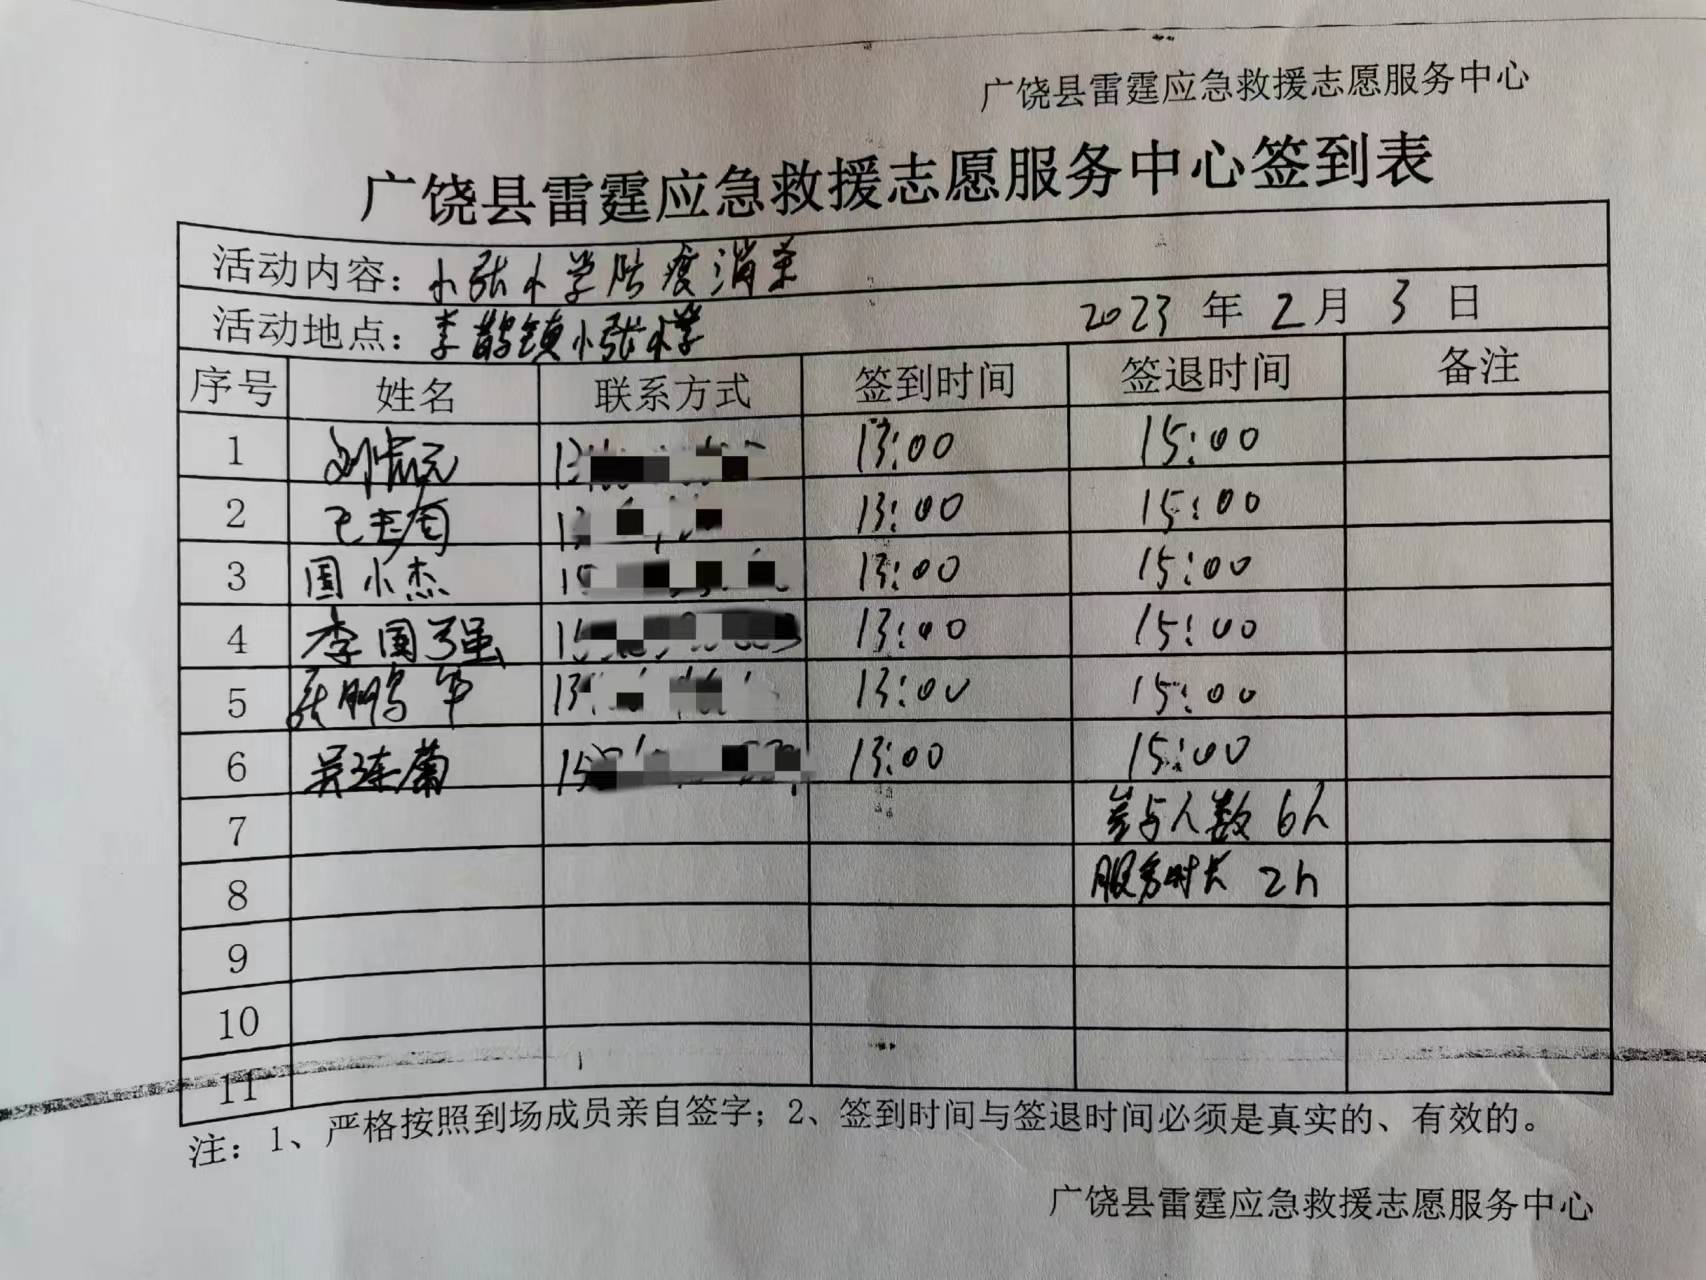 广饶县雷霆应急救援志愿服务中心
广饶县雷霆应急救援志愿服务中心签到表
活动内容：小张小学防疫消杀
活动地点：李鹊镇小张小学 2023 年 2 月 3 日
序号 姓名 联系方式 签到时间 签退时间 备注
1 刘振元 13 13:00 15:00
2 13 13:00 15:00
3 国小杰 15 13:00 15:00
4 李国强 15 13:00 15:00
5 张鹏军 13 13:00 15:00
6 吴连菊 15 13:00 15:00
7 参与人数 6人
8 服务时长 2h
9
10
11
注：1、严格按照到场成员亲自签字；2、签到时间与签退时间必须是真实的、有效的。
广饶县雷霆应急救援志愿服务中心